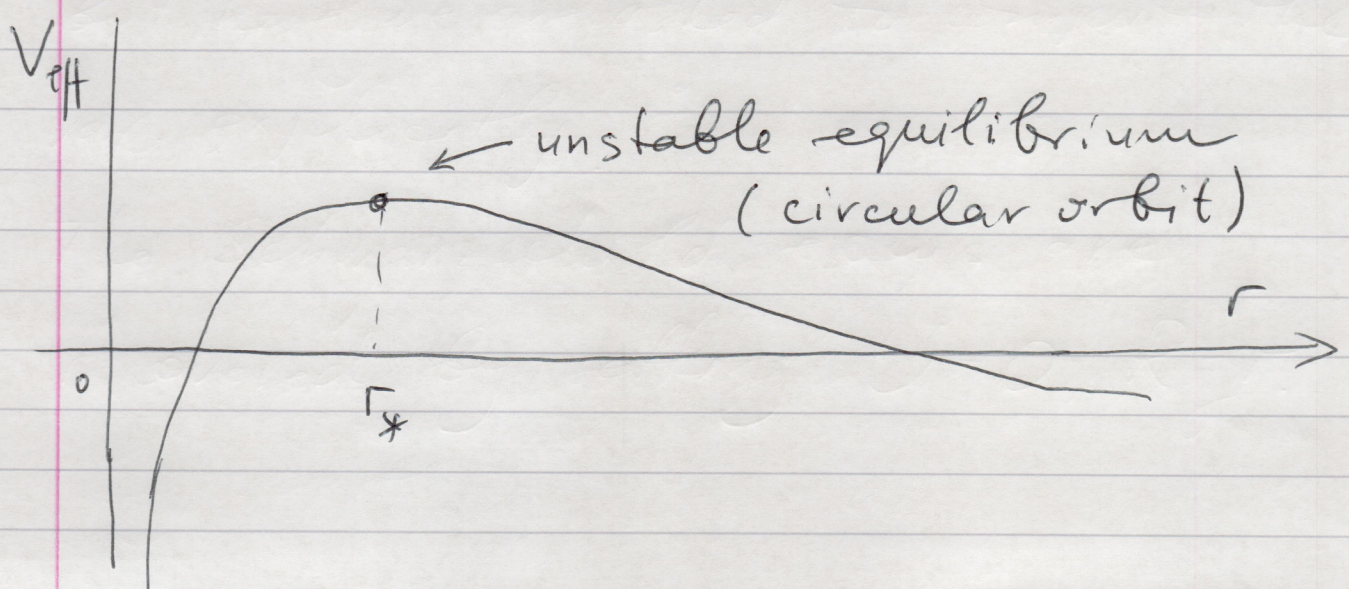 V_eff
unstable equilibrium
(circular orbit)
r
0
r_*